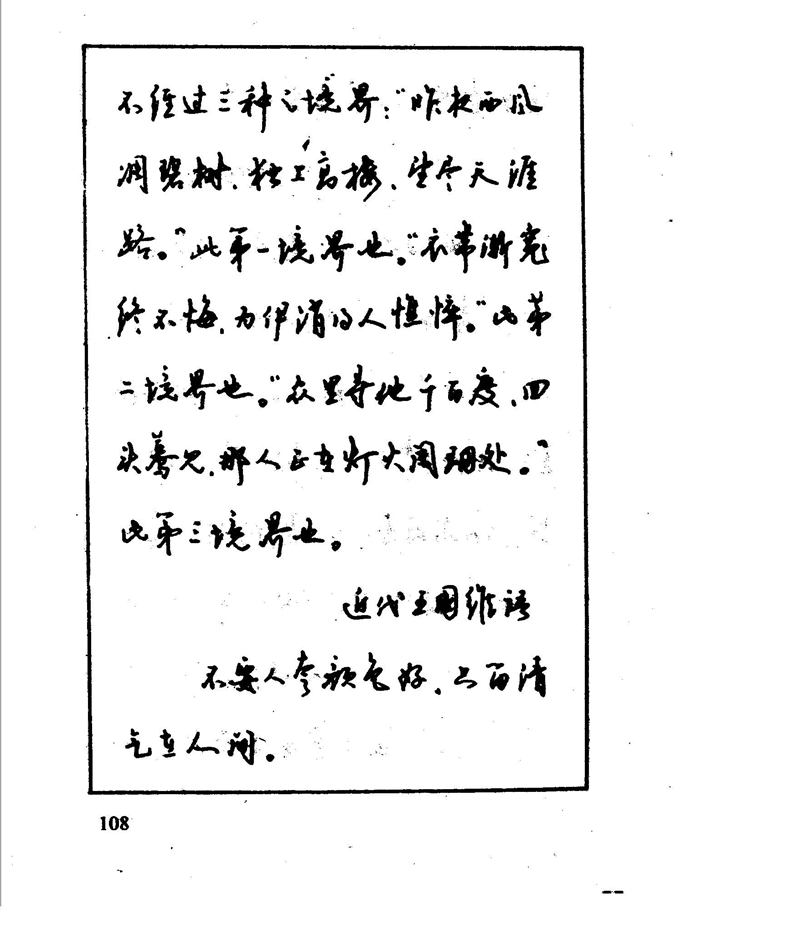 不经过三种之境界：“昨夜西风
凋碧树，独上高楼，望尽天涯
路。”此第一境界也。“衣带渐宽
终不悔，为伊消得人憔悴。”此第
二境界也。“众里寻他千百度，回
头蓦见，那人正在灯火阑珊处。”
此第三境界也。
近代王国维语
不要人夸颜色好，只留清
气在人间。
108